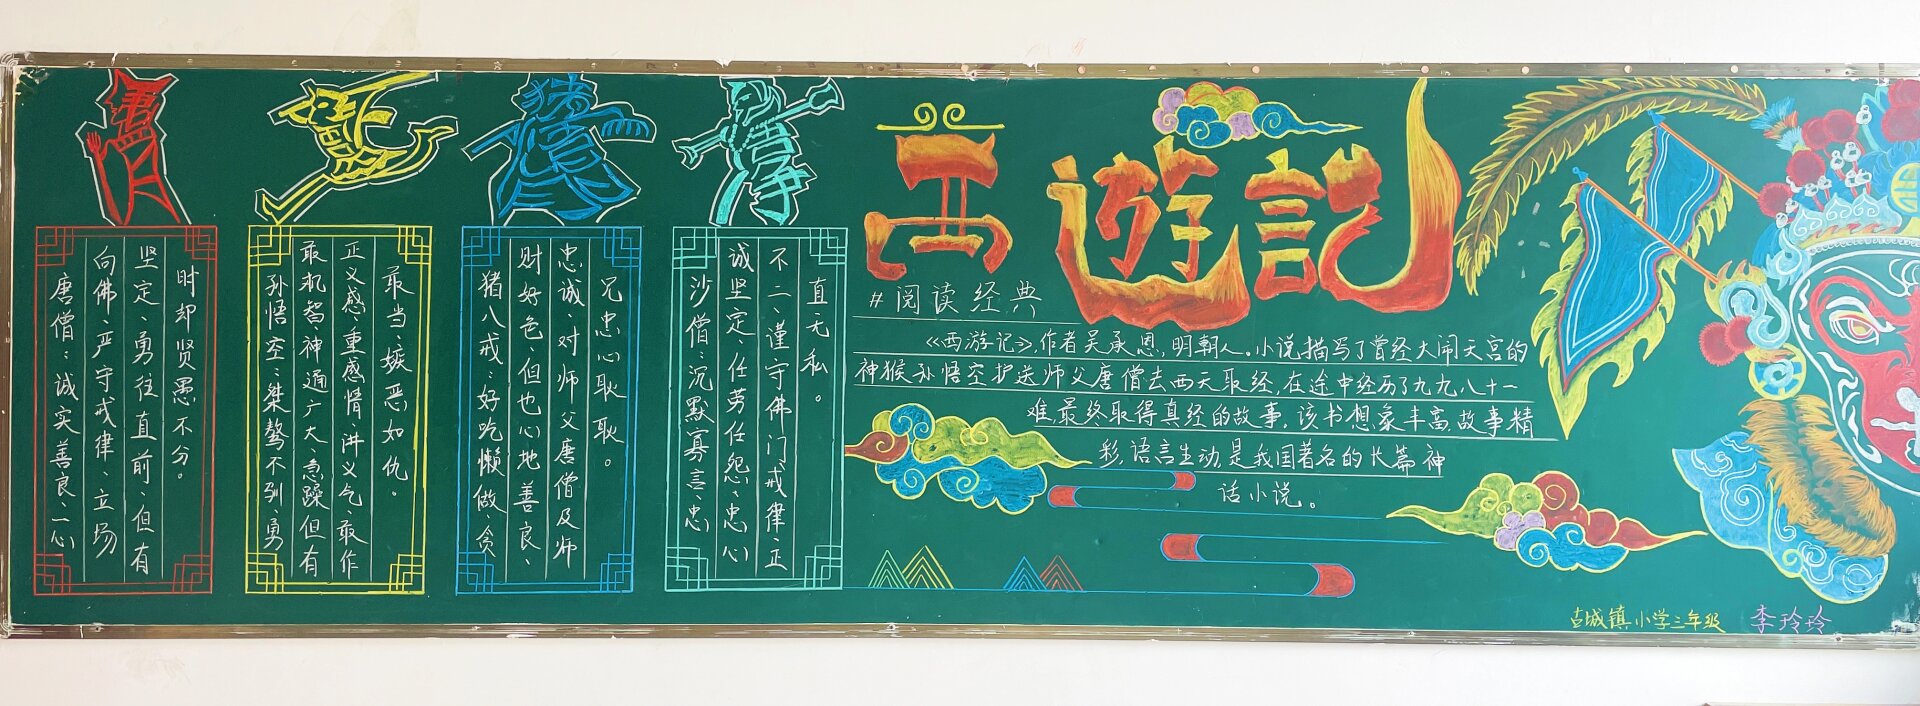 西遊記
#阅读经典
《西游记》,作者吴承恩,明朝人。小说描写了曾经大闹天宫的
神猴孙悟空护送师父唐僧去西天取经,在途中经历了九九八十一
难,最终取得真经的故事。该书想象丰富,故事精
彩,语言生动,是我国著名的长篇神
话小说。
猪
唐僧：诚实善良、一心
向佛、严守戒律、立场
坚定、勇往直前、但有
时却贤愚不分。
孙悟空：桀骜不驯、勇
敢机智神通广大、急躁但有
正义感、重感情、讲义气、敢作
敢当、嫉恶如仇。
猪八戒：好吃懒做、贪
财好色、但也心地善良、
忠诚、对师父唐僧及师
兄忠心耿耿。
沙僧：沉默寡言、忠
诚坚定、任劳任怨、忠心
不二、谨守佛门戒律、正
直无私。
古城镇小学三年级 李玲玲